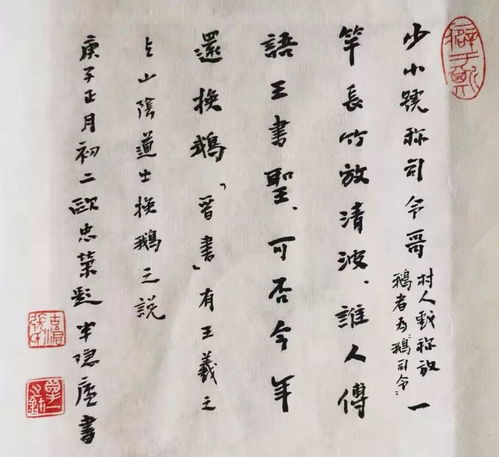 少小號称司令哥村人戯称放鵝者为鵝司令一
竿長竹放清波、誰人傳
語王書聖、可否今年
還換鵝「晉書」有王羲之
与山陰道士換鵝之説
庚子正月初二歐忠榮題半隐廬書